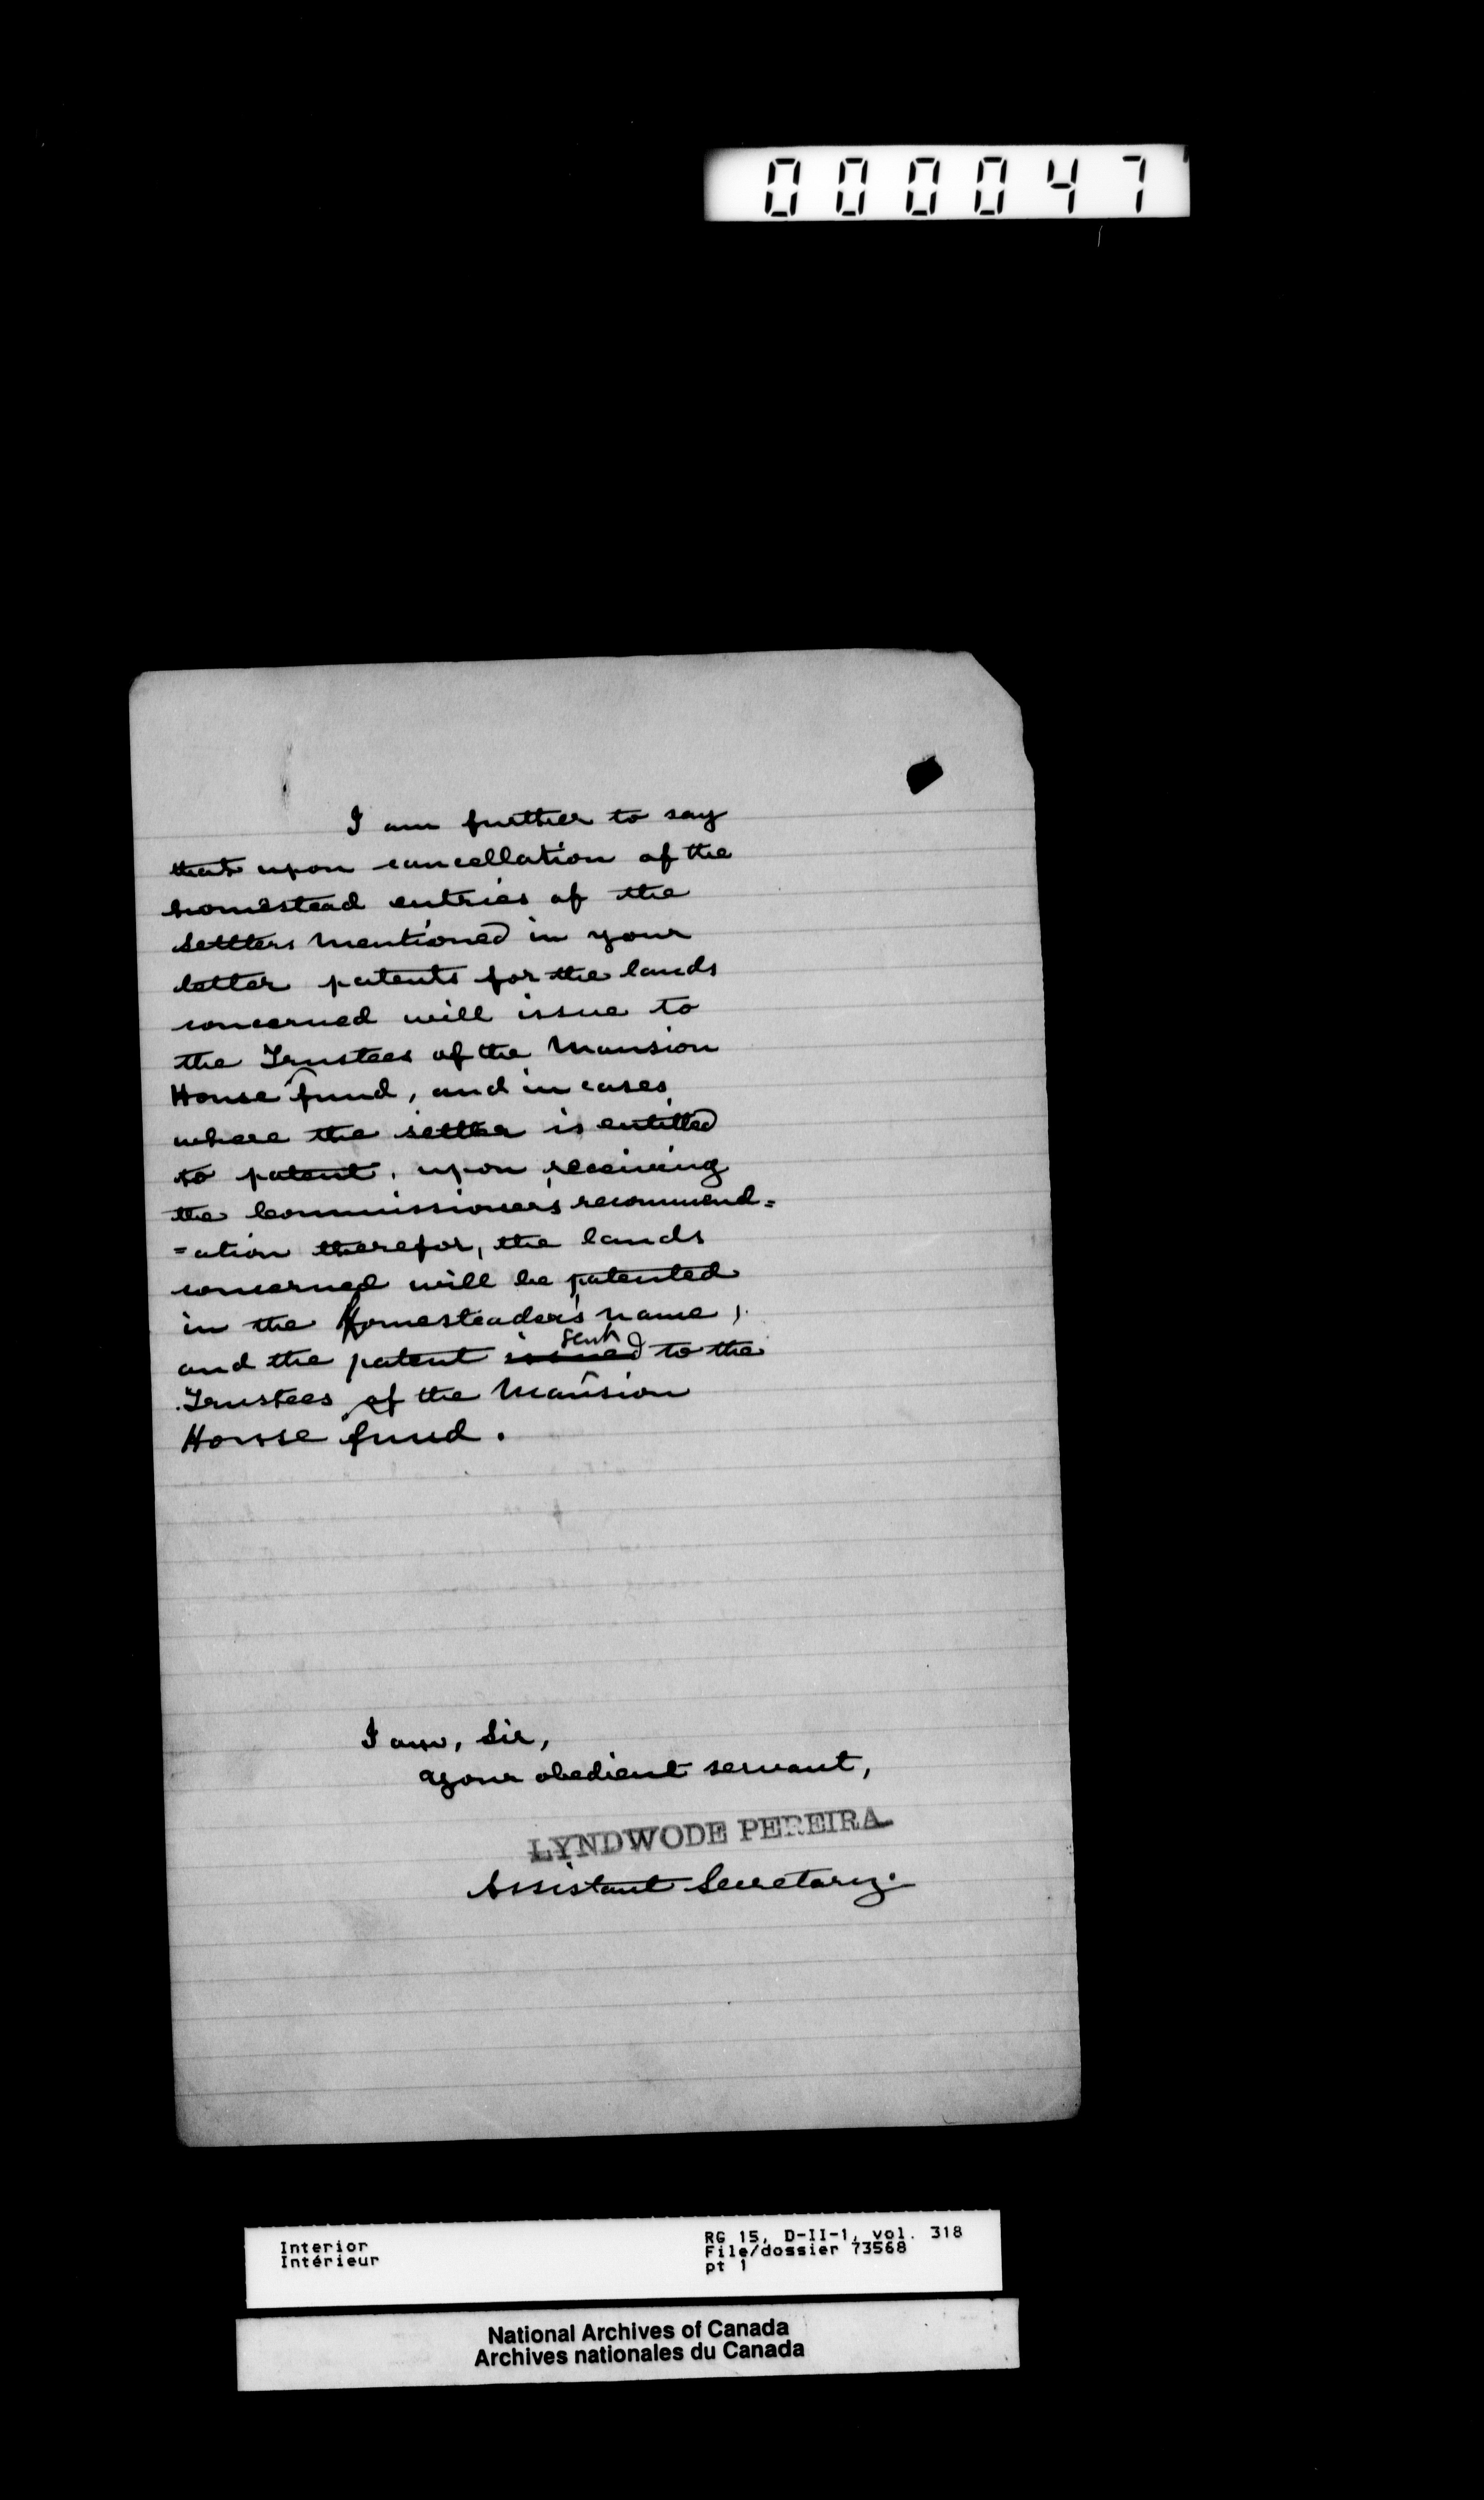 000047
I am further to say
that upon cancellation of the
homestead entries of the
settlers mentioned in your
letter patents for the lands
concerned will issue to
the Trustees of the Mansion
House fund, and in cases
where the settler is entitled
to patent, upon receiving
the Commissioner's recommend=
=ation therefor, the lands
concerned will be patented
in the Homesteader's name,
sent
and the patent issued to the
Trustees of the Mansion
House fund.
I am, Sir,
Your obedient servant,
LYNDWODE PEREIRA
Assistant Secretary.
Interior
Intérieur
RG 15, D-II-1, vol. 318
File/dossier 73568
pt 1
National Archives of Canada
Archives nationales du Canada